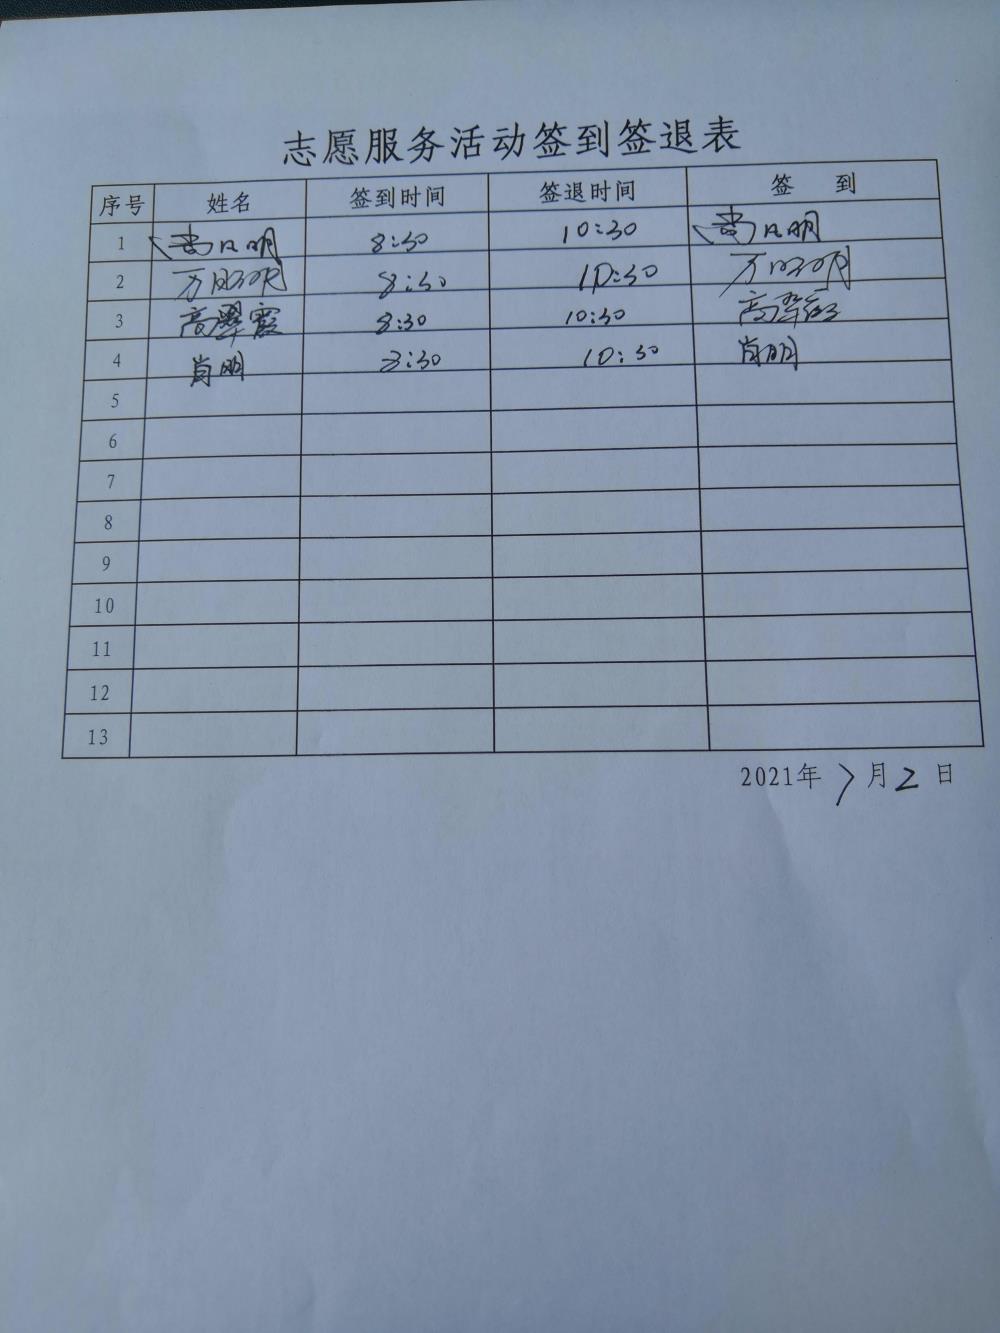 志愿服务活动签到签退表
序号 姓名 签到时间 签退时间 签 到
1 8:30 10:30
2 万 8:30 10:30 万
3 高翠霞 8:30 10:30 高翠霞
4 肖明 8:30 10:30 肖明
5
6
7
8
9
10
11
12
13
2021年7月2日